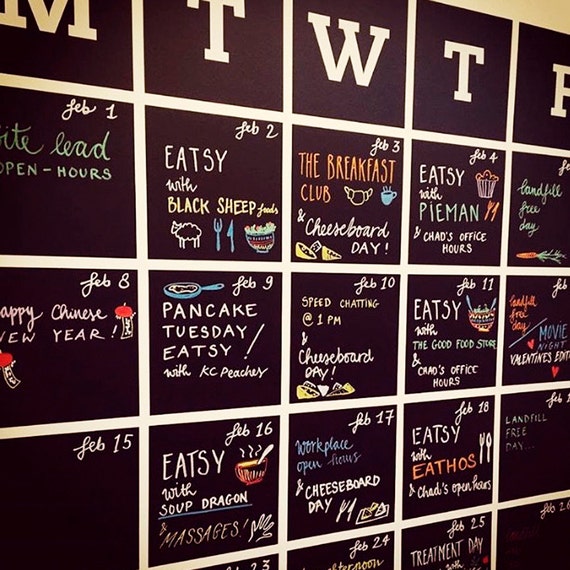 M T W T F
feb 1
site lead
OPEN-HOURS
feb 2
EATSY
with
BLACK SHEEP foods
feb 3
THE BREAKFAST
CLUB
& Cheeseboard
DAY!
feb 4
EATSY
with
PIEMAN
& CHAD'S OFFICE
HOURS
landfill
free
day
feb 8
Happy Chinese
NEW YEAR!
feb 9
PANCAKE
TUESDAY/
EATSY!
with KC PEACHES
feb 10
SPEED CHATTING
@ 1 PM
&
Cheeseboard
DAY!
feb 11
EATSY
with
THE GOOD FOOD STORE
& CHAD'S OFFICE
HOURS
feb
landfill
free
day/
MOVIE
NIGHT
VALENTINES EDIT
feb 15
feb 16
EATSY
with
SOUP DRAGON
& MASSAGES!
feb 17
Workplace
open hours
& CHEESEBOARD
DAY
feb 18
EATSY
with
EATHOS
& Chad's open hours
LANDFILL
FREE
DAY...
feb 23
feb 24
afternoon
feb 25
TREATMENT
DAY
feb 26